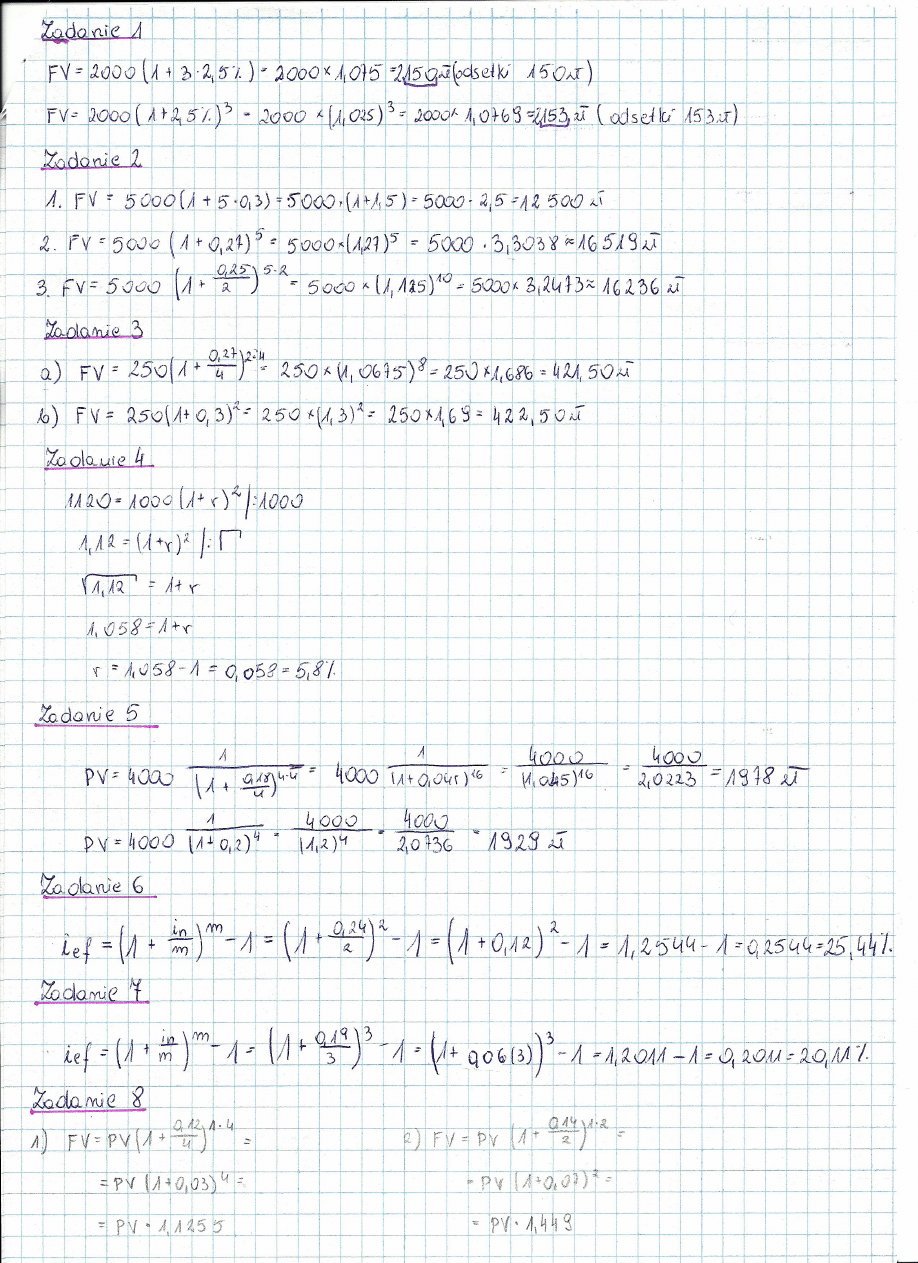 Zadanie 1
FV = 2000 (1 + 3 · 2,5%) = 2000 × 1,075 = 2150 zł (odsetki 150 zł)
FV = 2000 (1 + 2,5%)³ = 2000 × (1,025)³ = 2000 × 1,0769 = 2153 zł (odsetki 153 zł)
Zadanie 2
1. FV = 5000 (1 + 5 · 0,3) = 5000 · (1 + 1,5) = 5000 · 2,5 = 12 500 zł
2. FV = 5000 (1 + 0,27)⁵ = 5000 × (1,27)⁵ = 5000 · 3,3038 ≈ 16 519 zł
3. FV = 5000 (1 + 0,25/2)⁵·² = 5000 × (1,125)¹⁰ = 5000 × 3,2473 ≈ 16 236 zł
Zadanie 3
a) FV = 250 (1 + 0,27/4)²·⁴ = 250 × (1,0675)⁸ = 250 × 1,686 = 421,50 zł
b) FV = 250 (1 + 0,3)² = 250 × (1,3)² = 250 × 1,69 = 422,50 zł
Zadanie 4
1120 = 1000 (1 + r)² |:1000
1,12 = (1 + r)² |:√
√1,12 = 1 + r
1,058 = 1 + r
r = 1,058 − 1 = 0,058 = 5,8%
Zadanie 5
PV = 4000 1/(1 + 0,18/4)⁴·⁴ = 4000 1/(1 + 0,045)¹⁶ = 4000/(1,045)¹⁶ = 4000/2,0223 = 1978 zł
PV = 4000 1/(1 + 0,2)⁴ = 4000/(1,2)⁴ = 4000/2,0736 = 1929 zł
Zadanie 6
ief = (1 + in/m)ᵐ − 1 = (1 + 0,24/2)² − 1 = (1 + 0,12)² − 1 = 1,2544 − 1 = 0,2544 = 25,44%
Zadanie 7
ief = (1 + in/m)ᵐ − 1 = (1 + 0,19/3)³ − 1 = (1 + 0,06(3))³ − 1 = 1,2011 − 1 = 0,2011 = 20,11%
Zadanie 8
1) FV = PV (1 + 0,12/4)¹·⁴ =
= PV (1 + 0,03)⁴ =
= PV · 1,1255
2) FV = PV (1 + 0,14/2)¹·² =
= PV (1 + 0,07)² =
= PV · 1,449